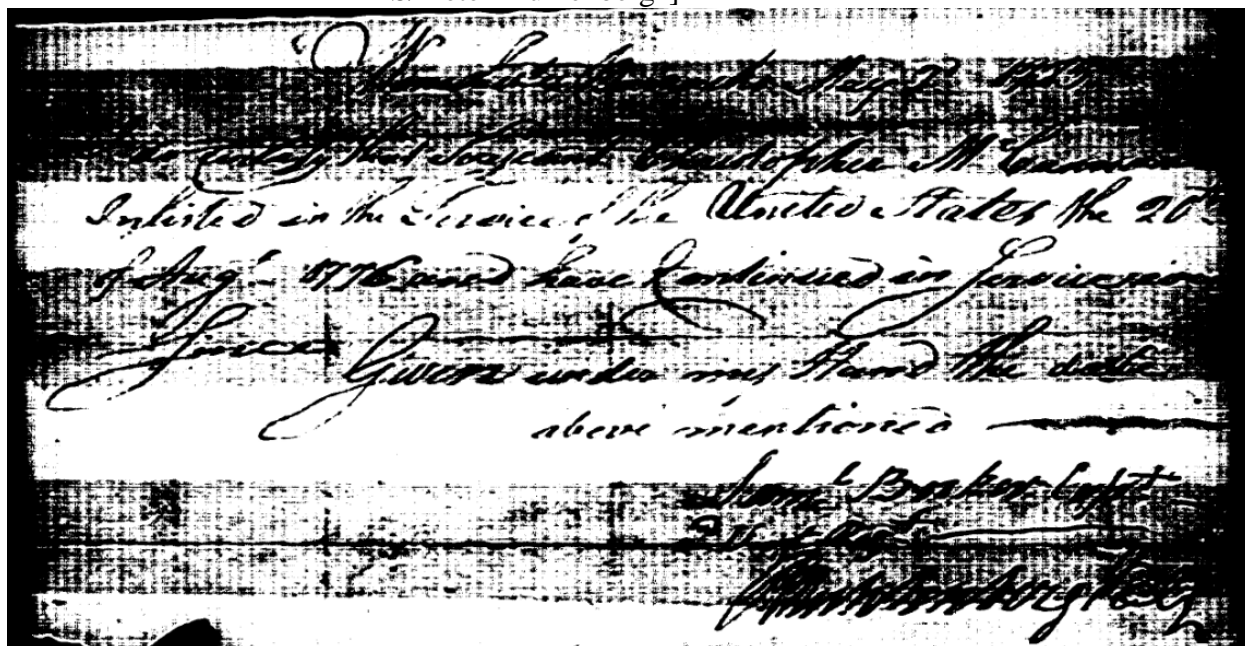 Winchester May 2d 1783
certify that Serjeant Christopher McCannon
Inlisted in the Service of the United States the 20th
of Augt 1776 and have Continued in Service ever
Since Given under my Hand the date
above mentioned
Saml Booker Capt
P Muhlenberg BG